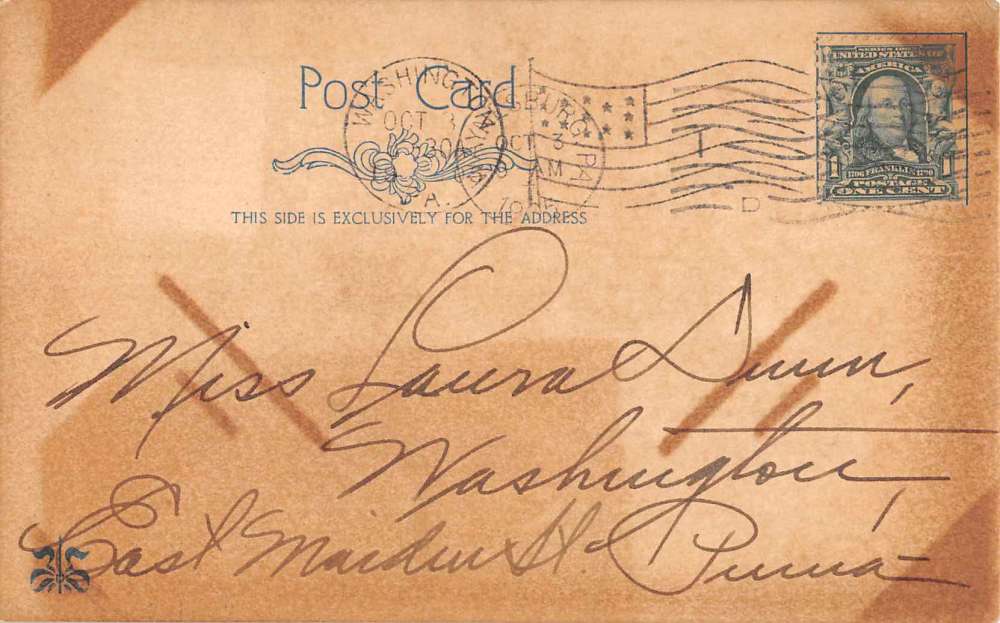 Post Card
THIS SIDE IS EXCLUSIVELY FOR THE ADDRESS
WASHINGTON
OCT 3
30A
PA.
BURG, PA.
OCT 3
AM
1
D
SERIES 1902
UNITED STATES OF
AMERICA
1 1
1706 FRANKLIN 1790
POSTAGE
ONE CENT
Miss Laura Dunn,
Washington,
East Maiden St. Penna